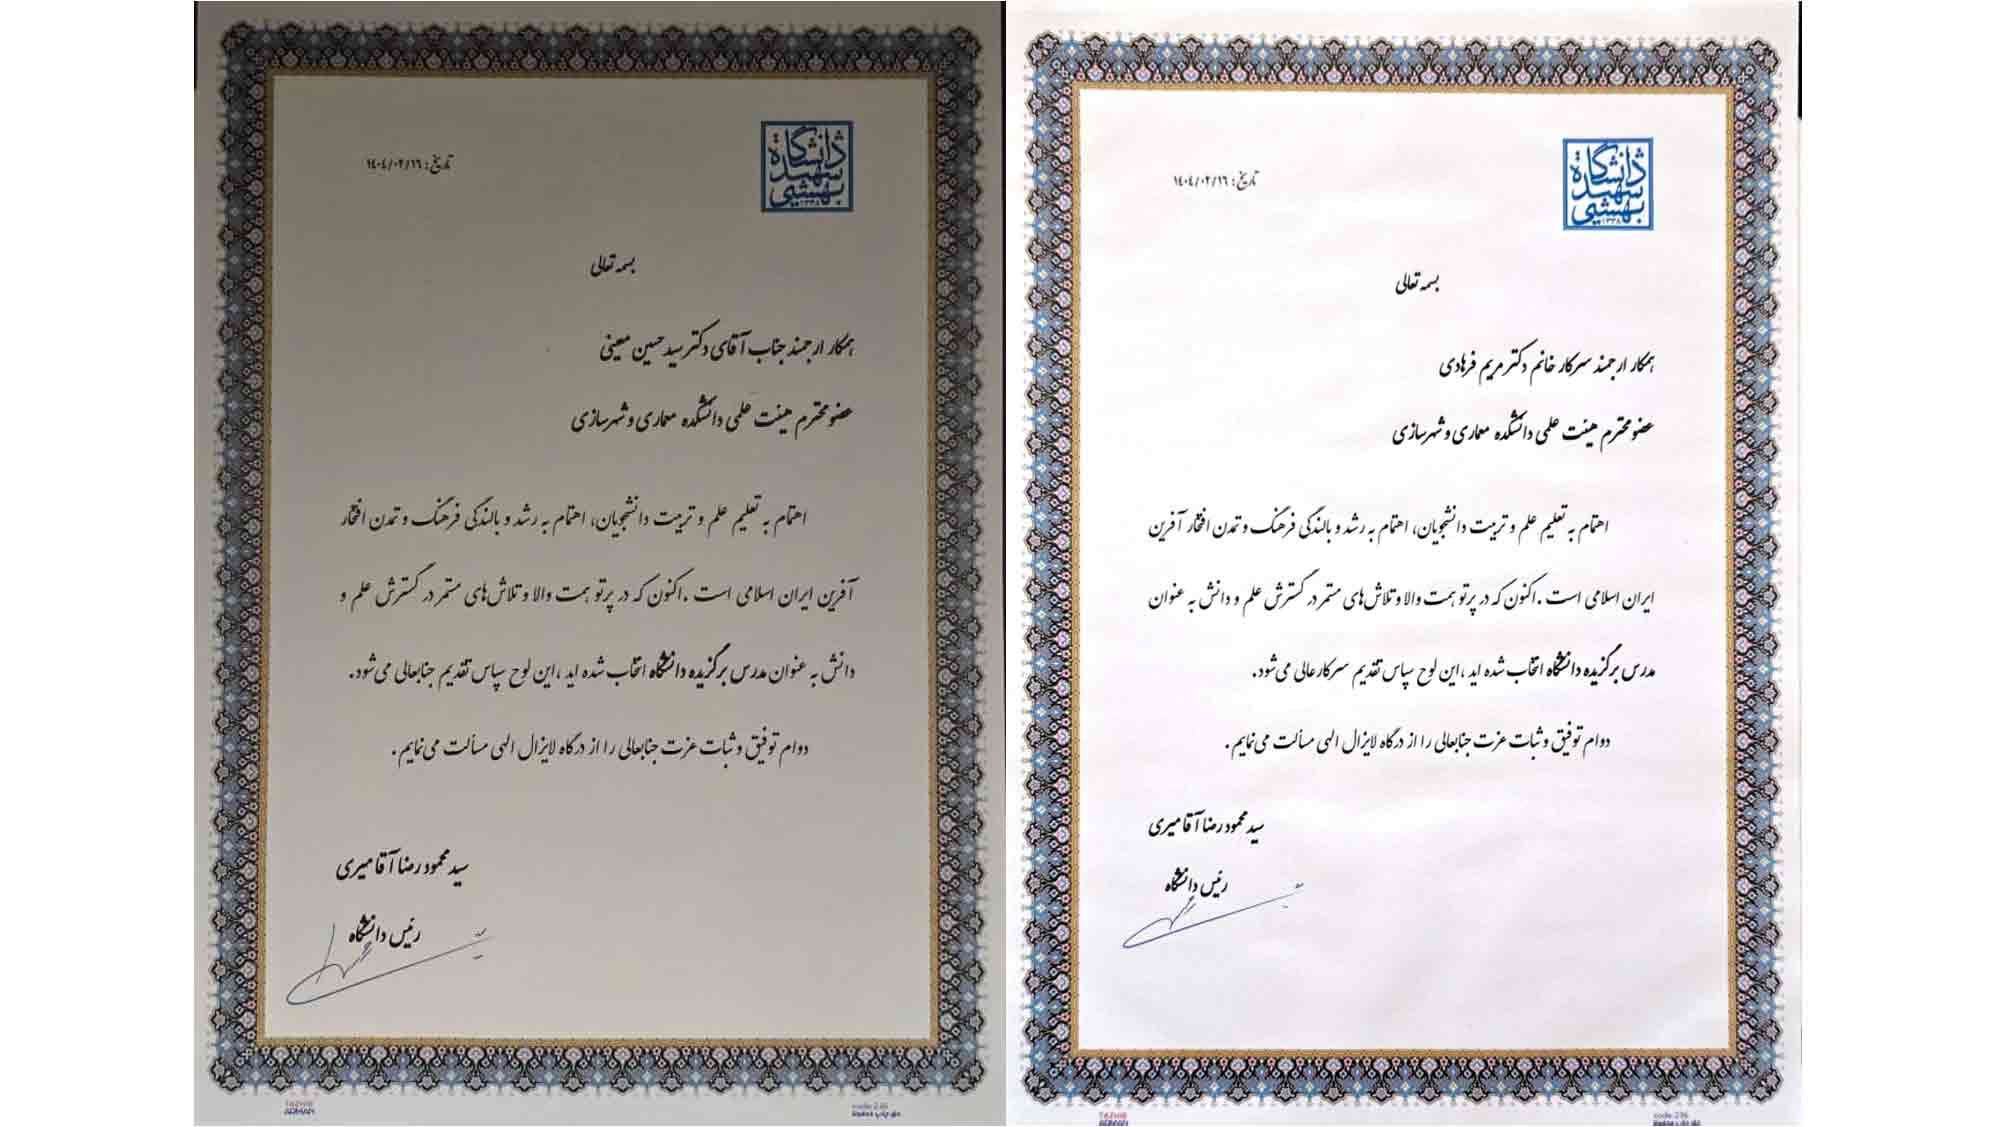 دانشگاه
شهید
بهشتی
۱۳۳۸
تاریخ: ۱۴۰۴/۰۲/۱۶
بسمه تعالی
همکار ارجمند جناب آقای دکتر سید حسین معینی
عضو محترم هیئت علمی دانشکده معماری و شهرسازی
اهتمام به تعلیم علم و تربیت دانشجویان، اهتمام به رشد و بالندگی فرهنگ و تمدن افتخار
آفرین ایران اسلامی است .اکنون که در پرتو همت والا و تلاش‌های مستمر در گسترش علم و
دانش به عنوان مدرس برگزیده دانشگاه انتخاب شده اید ،این لوح سپاس تقدیم جنابعالی می‌شود.
دوام توفیق و ثبات عزت جنابعالی را از درگاه لایزال الهی مسألت می‌نمایم.
سید محمود رضا آقامیری
رئیس دانشگاه
TAZHIB
ARMAN
code:236
حق چاپ محفوظ
دانشگاه
شهید
بهشتی
۱۳۳۸
تاریخ: ۱۴۰۴/۰۲/۱۶
بسمه تعالی
همکار ارجمند سرکار خانم دکتر مریم فرهادی
عضو محترم هیئت علمی دانشکده معماری و شهرسازی
اهتمام به تعلیم علم و تربیت دانشجویان، اهتمام به رشد و بالندگی فرهنگ و تمدن افتخار آفرین
ایران اسلامی است .اکنون که در پرتو همت والا و تلاش‌های مستمر در گسترش علم و دانش به عنوان
مدرس برگزیده دانشگاه انتخاب شده اید ،این لوح سپاس تقدیم سرکار عالی می‌شود.
دوام توفیق و ثبات عزت جنابعالی را از درگاه لایزال الهی مسألت می‌نمایم.
سید محمود رضا آقامیری
رئیس دانشگاه
TAZHIB
ARMAN
code:236
حق چاپ محفوظ